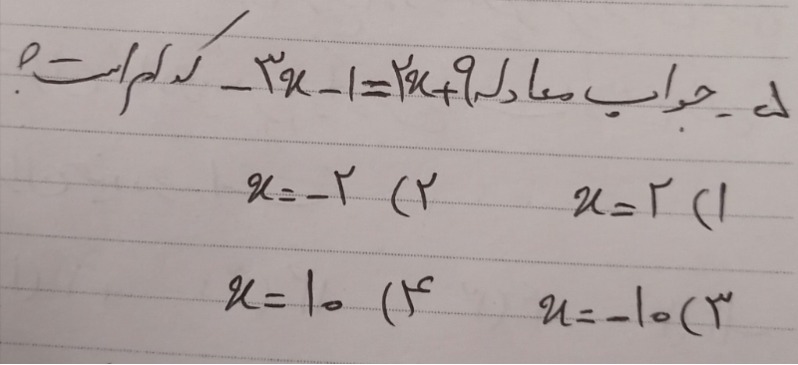 ۵_ جواب معادله -۳x-۱=۲x+۹ کدام است؟
۱) x=۲ ۲) x=-۲
۳) x=-۱۰ ۴) x=۱۰